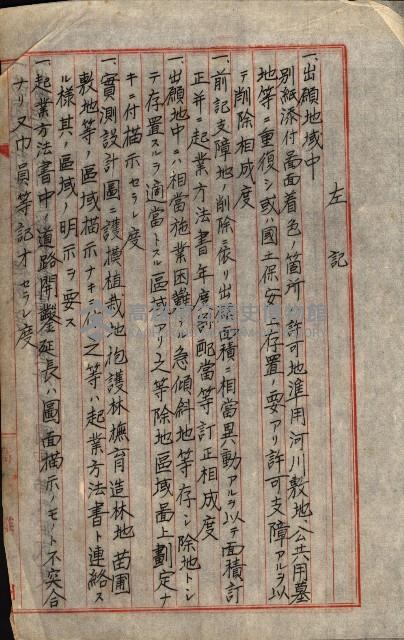 左記
一、出願地域中
別紙添付圖面着色ノ箇所ハ許可地準用河川敷地、公共用墓
地等ニ重復シ或ハ國土保安上存置ノ要アリ許可支障アルヲ以
テ削除相成度
一、前記支障地ノ削除ニ依リ出願面積ニ相當異動アルヲ以テ面積訂
正并ニ起業方法書年度割配當等訂正相成度
一、出願地中ニハ相當施業困難ナル急傾斜地等存シ除地トシ
テ存置スルヲ適當トスル區域アリ之等除地區域圖上劃定ナ
キニ付描示セラレ度
一、實測設計圖ニ護謨植栽地抱護林撫育造林地苗圃
敷地等ノ區域描示ナキ之等ハ起業方法書ト連絡ス
ル樣其ノ區域ノ明示ヲ要ス
一、起業方法書中ノ道路開鑿延長ハ圖面描示ノモノト不突合
ナリ又巾員等記オセラレ度